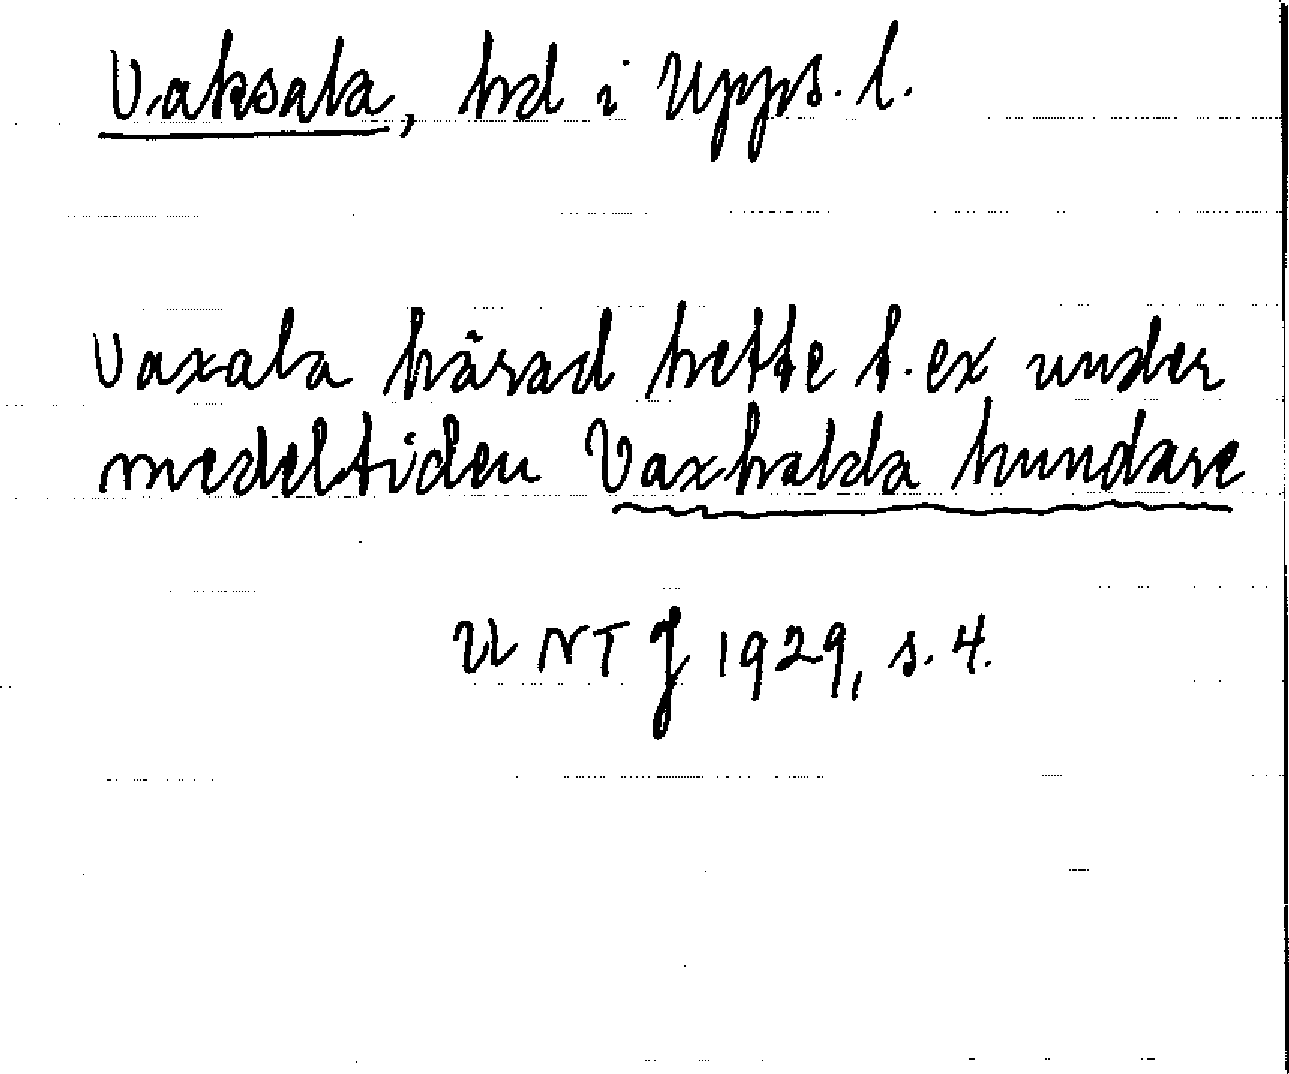 Vaksala, hd i Upps. l.
Vaxala härad hette t.ex under
medeltiden Vaxhalda hundare
UNT J 1929, s. 4.